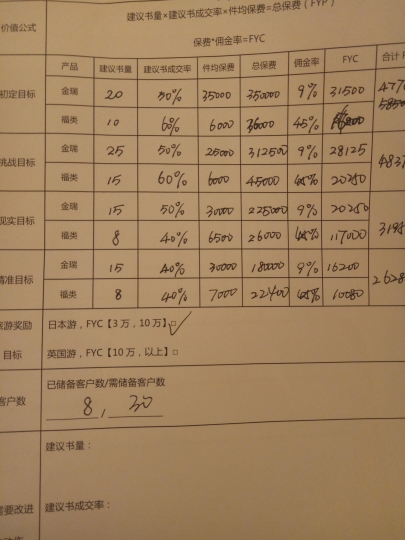 建议书量×建议书成交率×件均保费=总保费（FYP）
价值公式
保费*佣金率=FYC
产品 建议书量 建议书成交率 件均保费 总保费 佣金率 FYC 合计
初定目标 金瑞 20 50% 35000 350000 9% 31500
福类 10 60% 6000 36000 45%
挑战目标 金瑞 25 50% 25000 312500 9% 28125
福类 15 60% 6000 45000 45% 20250
现实目标 金瑞 15 50% 30000 225000 9% 20250
福类 8 40% 6500 26000 45% 117000
精准目标 金瑞 15 40% 30000 180000 9% 16200
福类 8 40% 7000 22400 45% 10080
旅游奖励 日本游，FYC【3万，10万】□
目标 英国游，FYC【10万，以上】□
已储备客户数/需储备客户数
客户数 8 , 30
建议书量：
需要改进 建议书成交率：